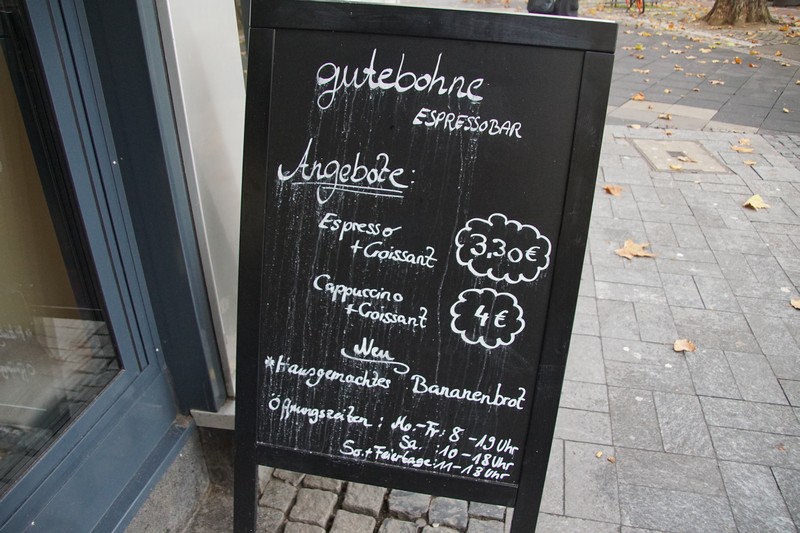 gutebohne
ESPRESSOBAR
Angebote:
Espresso
+ Croissant
3.30€
Cappuccino
+ Croissant
4€
Neu
*Hausgemachtes Bananenbrot
Öffnungszeiten: Mo.-Fr: 8-19 Uhr
Sa. :10-18 Uhr
So.+Feiertage:11-18 Uhr